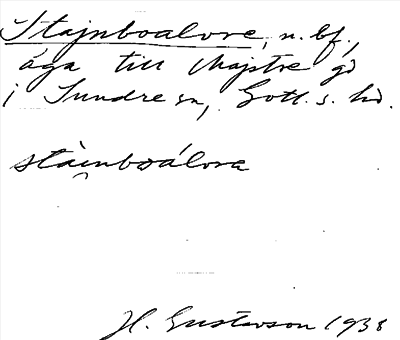 Stajnboalore, n. bf.,
äga till Majstre gd
i Sundre sn, Gotl. s. hd.
stàinboálora
H. Gustavson 1938